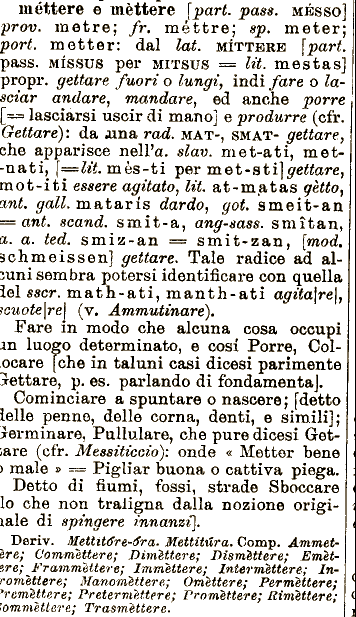 méttere e mèttere [part. pass. MÉSSO]
prov. metre; fr. méttre; sp. meter;
port. metter: dal lat. MÍTTERE [part.
pass. MÍSSUS per MITSUS = lit. mestas]
propr. gettare fuori o lungi, indi fare o la-
sciar andare, mandare, ed anche porre
[= lasciarsi uscir di mano] e produrre (cfr.
Gettare): da una rad. MAT-, SMAT- gettare,
che apparisce nell'a. slav. met-ati, met-
-nati, [=lit. mès-ti per met-sti] gettare,
mot-iti essere agitato, lit. at-matas gètto,
ant. gall. mataris dardo, got. smeit-an
= ant. scand. smit-a, ang-sass. smîtan,
a. a. ted. smiz-an = smit-zan, [mod.
schmeissen] gettare. Tale radice ad al-
cuni sembra potersi identificare con quella
del sscr. math-ati, manth-ati agita[re],
scuote[re] (v. Ammutinare).
Fare in modo che alcuna cosa occupi
un luogo determinato, e cosí Porre, Col-
locare [che in taluni casi dicesi parimente
Gettare, p. es. parlando di fondamenta].
Cominciare a spuntare o nascere; [detto
delle penne, delle corna, denti, e simili];
Germinare, Pullulare, che pure dicesi Get-
tare (cfr. Messiticcio): onde « Metter bene
o male » = Pigliar buona o cattiva piega.
Detto di fiumi, fossi, strade Sboccare
lo che non traligna dalla nozione origi-
nale di spingere innanzi].
Deriv. Mettitóre-óra. Mettitúra. Comp. Ammet-
tère; Commèttere; Dimèttere; Dismèttere; Emèt-
tere; Frammèttere; Immèttere; Intermèttere; In-
tromèttere; Manomèttere; Omèttere; Permèttere;
Premèttere; Pretermèttere; Promèttere; Rimèttere;
Sommèttere; Trasmèttere.